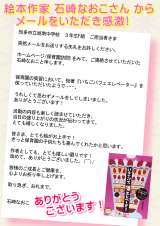 絵本作家 石崎なおこさん から
メールをいただき感激!
知多市立旭南中学校 3年生F組 ご担当者さま
突然メールをお送りする失礼をお許しください。
ホームページ「保育園訪問」をみて、ご連絡させていただいた
石崎なおこと申します。
保育園の実習において、拙著「いちごパフェエレベーター」を
使ってくださったようで・・・、
うれしくて思わずメールをしてしまいました。
ありがとうございます!
活動の内容も楽しく読ませていただき、
とても嬉しくなりました。
皆さま、とても絵がお上手で!
きっと保育園の子供たちも喜んでくれたかと思います。
作者としても、とても嬉しい限りです!
改めて、ありがとうございました。
皆様のご成長とご健康を、
心よりお祈り申し上げます。
取り急ぎ、お礼まで。
石崎なおこ
ありがとう
ございます!